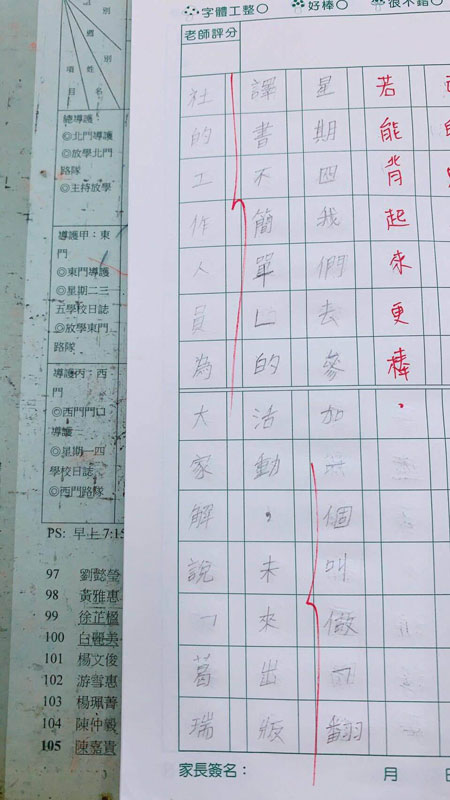 字體工整○
好棒○
很不錯○
老師評分
若能背起來更棒，
星期四我們去參加 個叫做「翻
譯書不簡單」的活動，未來出版
社的工作人員為大家解說「葛瑞
家長簽名：
月
別
週
別
姓
名
項
目
總導護
◎北門導護
◎放學北門
路隊
◎主持放學
導護甲：東
門
◎東門導護
◎星期二三
五學校日誌
◎放學東門
路隊
導護丙：西
門
◎西門門口
導護
◎星期一四
學校日誌
◎西門路隊
PS: 早上 7:15
97 劉懿瑩
98 黃雅惠
99 徐芷楹
100 白麗美
101 楊文俊
102 游雪惠
103 楊珮菁
104 陳仲毅
105 陳嘉貴